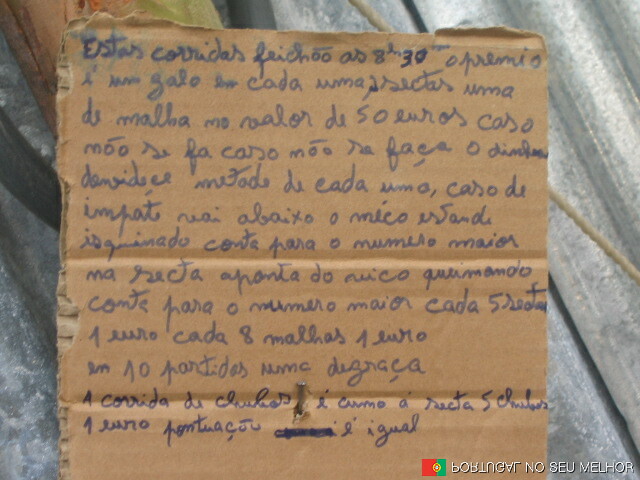 Estas corridas feichõo as 8h30 o premio
é um galo em cada uma, 5 sectas uma
de malha no valor de 50 euros caso
nõo se fa caso nõo se faça o dinheiro
metade de cada uma, caso de
impate vai abaixo o méco estande
isquinado conta para o numero maior
na secta aponta do vico queimando
conta para o numero maior cada 5 sectas
1 euro cada 8 malhas 1 euro
em 10 partidas uma degraça
1 corrida de chuhos é cumo á secta 5 chuhos
1 euro pontuação é igual
PORTUGAL NO SEU MELHOR